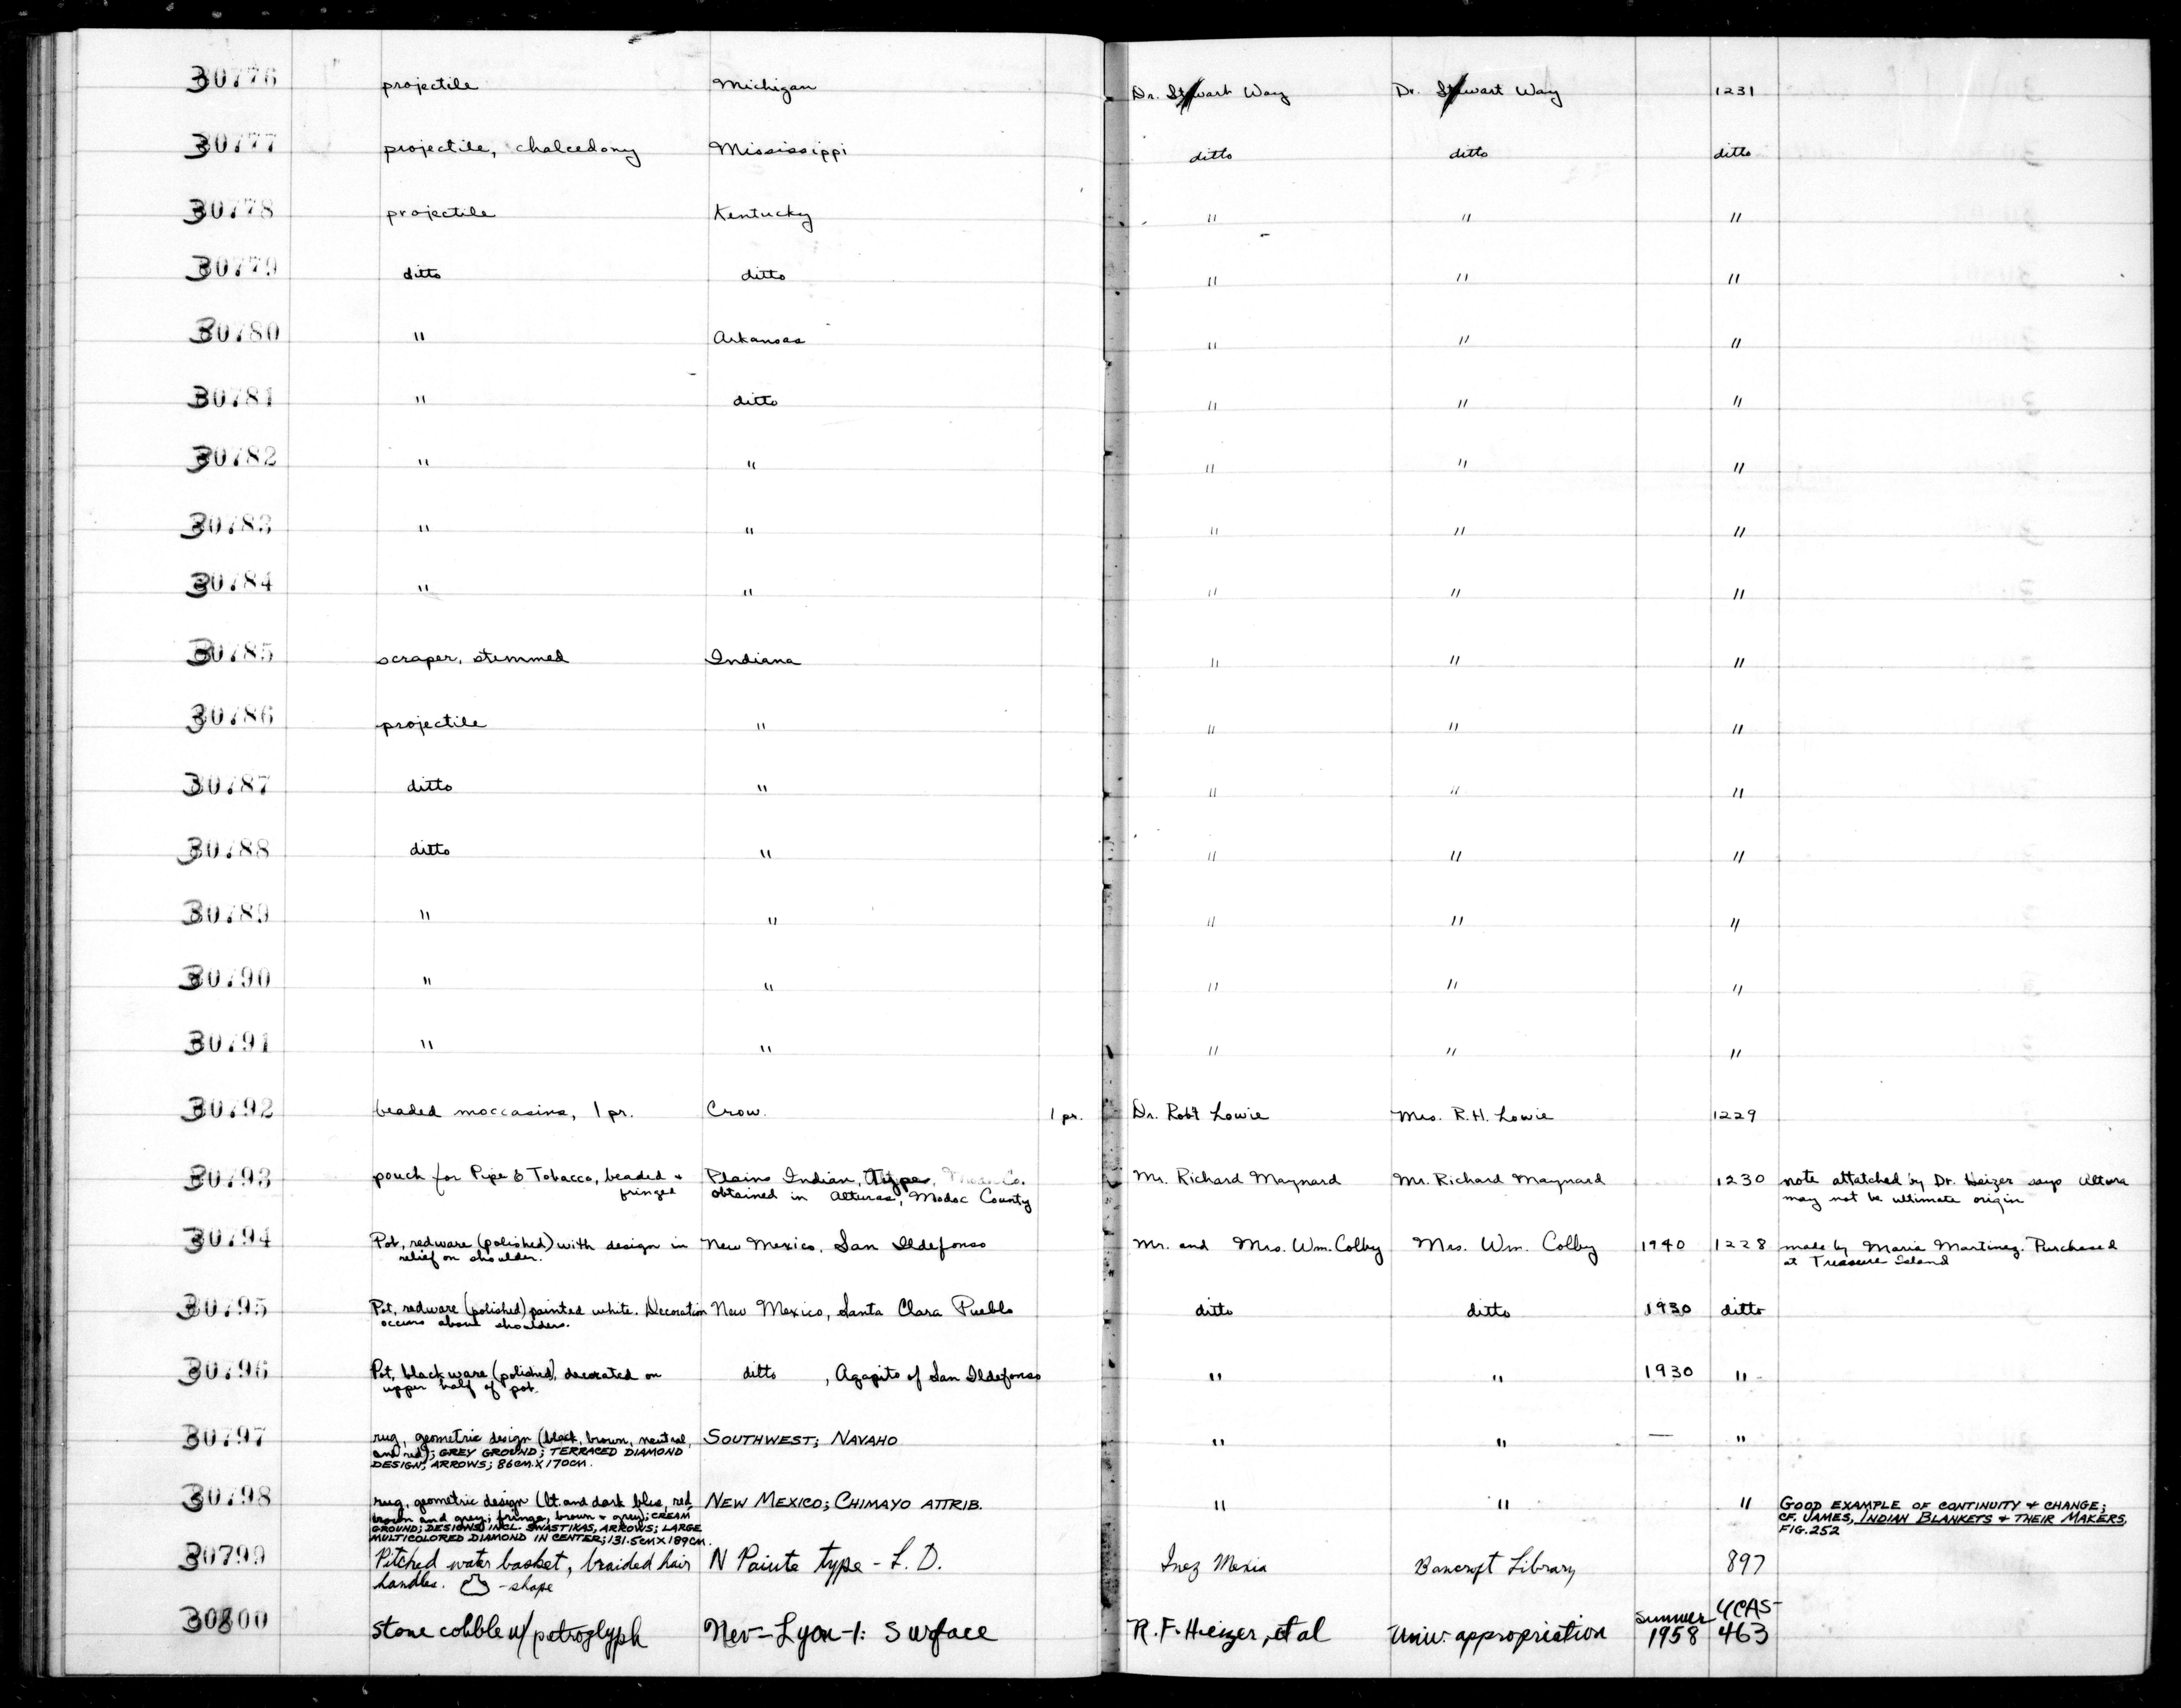 30776 projectile Michigan Dr. Stewart Way Dr. Stewart Way 1231
30777 projectile, chalcedony Mississippi ditto ditto ditto
30778 projectile Kentucky " " "
30779 ditto ditto " " "
30780 " Arkansas " " "
30781 " ditto " " "
30782 " " " " "
30783 " " " " "
30784 " " " " "
30785 scraper, stemmed Indiana " " "
30786 projectile " " " "
30787 ditto " " " "
30788 ditto " " " "
30789 " " " " "
30790 " " " " "
30791 " " " " "
30792 beaded moccasins, 1 pr. Crow. 1 pr. Dr. Robt Lowie Mrs. R.H. Lowie 1229
30793 pouch for Pipe & Tobacco, beaded + Plains Indian, Mr. Richard Maynard Mr. Richard Maynard 1230 note attatched by Dr. Heizer says Altura
fringed obtained in Alturas, Modoc County may not be ultimate origin
30794 Pot, redware (polished) with design in New Mexico, San Ildefonso Mr. and Mrs. Wm. Colby Mrs. Wm. Colby 1940 1228 made by Maria Martinez. Purchased
relief on shoulder. at Treasure Island
30795 Pot, redware (polished) painted white. Decoration New Mexico, Santa Clara Pueblo ditto ditto 1930 ditto
occurs about shoulders.
30796 Pot, blackware (polished), decorated on ditto , Agapito of San Ildefonso " " 1930 "
upper half of pot.
30797 rug, geometric design (black, brown, neutral, SOUTHWEST; NAVAHO " " — "
and red); GREY GROUND; TERRACED DIAMOND
DESIGN, ARROWS; 86CM. X 170CM.
30798 rug, geometric design (lt. and dark blue, red, NEW MEXICO; CHIMAYO ATTRIB. " " " GOOD EXAMPLE OF CONTINUITY + CHANGE;
brown and grey; fringe, brown + grey); CREAM CF. JAMES, INDIAN BLANKETS + THEIR MAKERS,
GROUND; DESIGNS INCL. SWASTIKAS, ARROWS; LARGE FIG. 252
MULTICOLORED DIAMOND IN CENTER; 131.5CM X 189CM.
30799 Pitched water basket, braided hair N Paiute type - L. D. Inez Mexia Bancroft Library 897
handles. - shape
30800 stone cobble w/ petroglyph Nev-Lyon-1: Surface R. F. Heizer, et al Univ. appropriation Summer UCAS-
1958 463